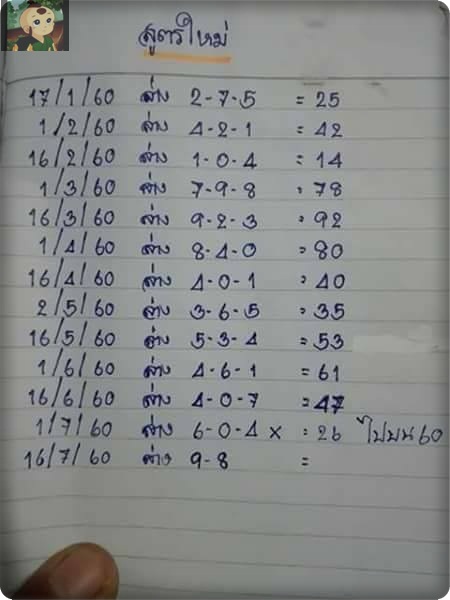 สูตรใหม่
17/1/60 ล่าง 2-7-5 = 25
1/2/60 ล่าง 4-2-1 = 42
16/2/60 ล่าง 1-0-4 = 14
1/3/60 ล่าง 7-9-8 = 78
16/3/60 ล่าง 9-2-3 = 92
1/4/60 ล่าง 8-4-0 = 80
16/4/60 ล่าง 4-0-1 = 40
2/5/60 ล่าง 3-6-5 = 35
16/5/60 ล่าง 5-3-4 = 53
1/6/60 ล่าง 4-6-1 = 61
16/6/60 ล่าง 4-0-7 = 47
1/7/60 ล่าง 6-0-4 × = 26 ไปบน 60
16/7/60 ล่าง 9-8 =